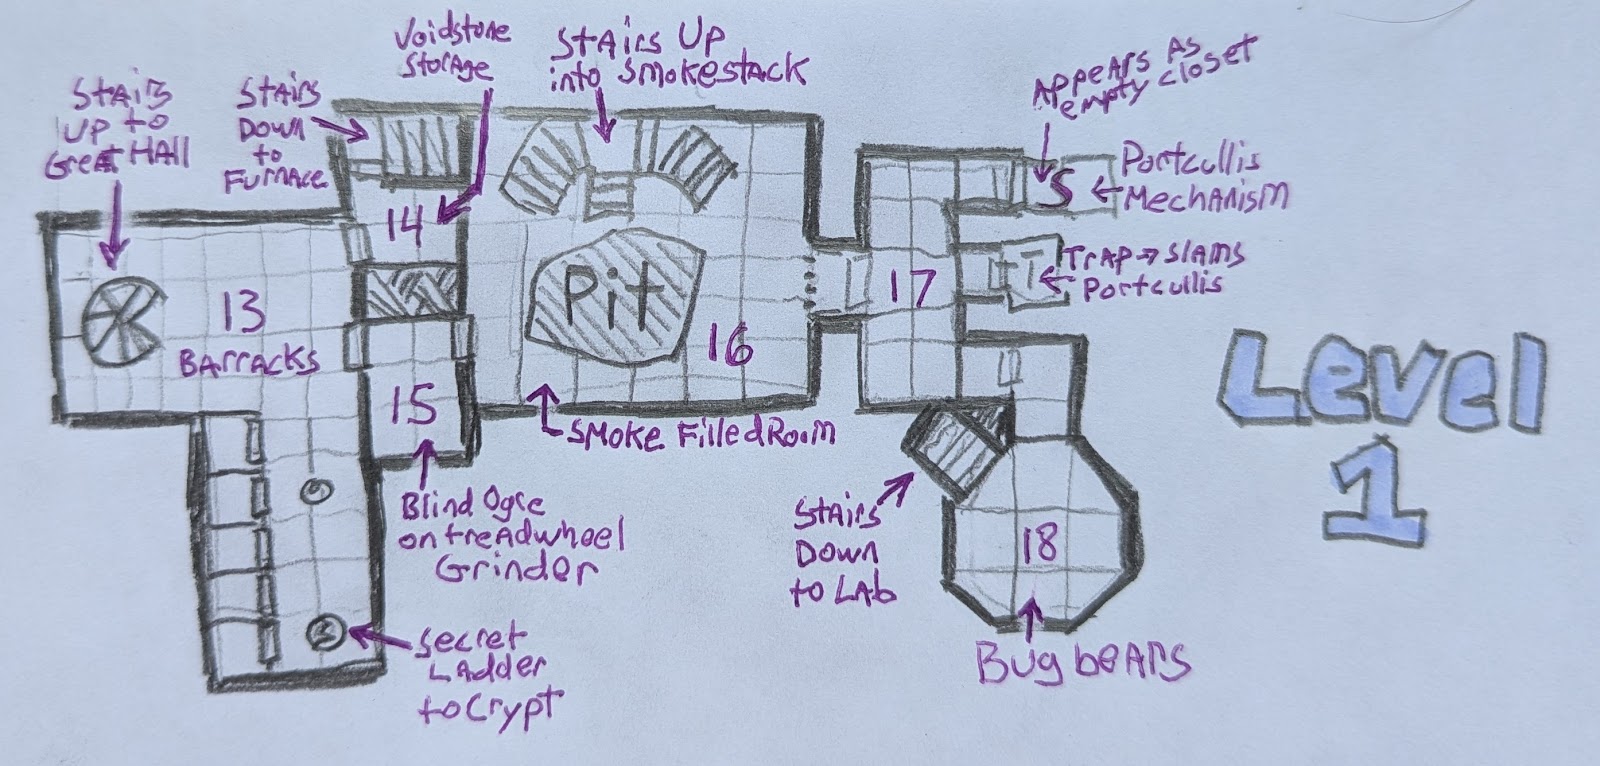 Stairs
Up to
Great Hall
Stairs
Down
to
Furnace
Voidstone
Storage
Stairs Up
into Smokestack
Appears as
empty closet
Portcullis
Mechanism
S
Trap → Slams
Portcullis
T
14
13
Barracks
Pit
16
17
15
Smoke Filled Room
Blind Ogre
on treadwheel
Grinder
Stairs
Down
to Lab
18
Bugbears
S
Secret
Ladder
to Crypt
Level
1